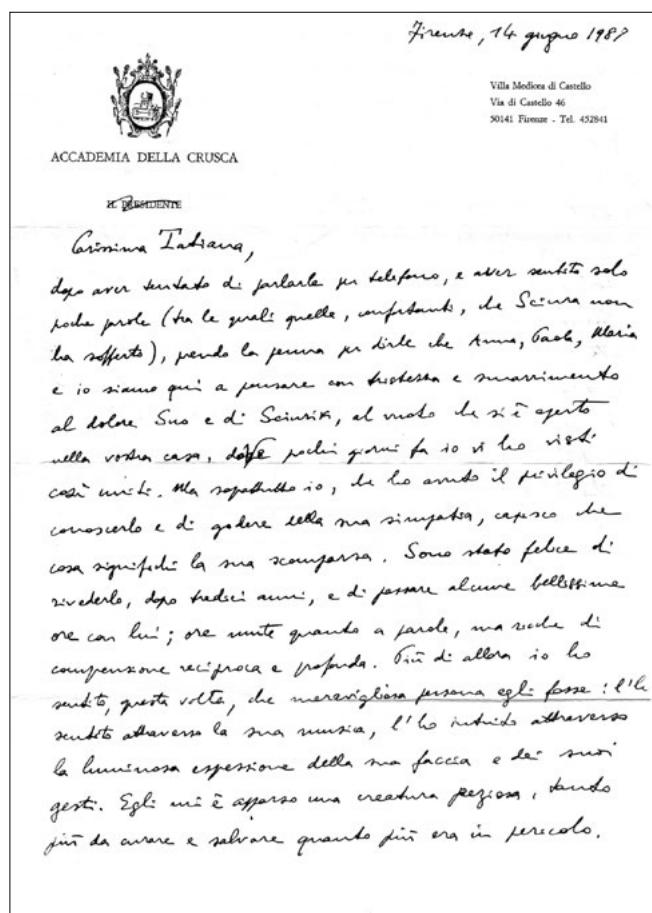 Firenze, 14 giugno 1987
Villa Medicea di Castello
Via di Castello 46
50141 Firenze - Tel. 452841
ACCADEMIA DELLA CRUSCA
IL PRESIDENTE
Carissima Tatiana,
dopo aver tentato di parlarle per telefono, e aver sentito solo
poche parole (tra le quali quelle, confortanti, che Sciura non
ha sofferto), prendo la penna per dirle che Anna, Paola, Maria
e io siamo qui a pensare con tristezza e smarrimento
al dolore Suo e di Sciurik, al vuoto che si è aperto
nella vostra casa, dove pochi giorni fa io vi ho visti
così uniti. Ma soprattutto io, che ho avuto il privilegio di
conoscerlo e di godere della sua simpatia, capisco che
cosa significhi la sua scomparsa. Sono stato felice di
rivederlo, dopo tredici anni, e di passare alcune bellissime
ore con lui; ore mute quanto a parole, ma ricche di
comprensione reciproca e profonda. Più di allora io ho
sentito, questa volta, che meravigliosa persona egli fosse: l'ho
sentito attraverso la sua musica, l'ho intuito attraverso
la luminosa espressione della sua faccia e dei suoi
gesti. Egli mi è apparso una creatura preziosa, tanto
più da curare e salvare quanto più era in pericolo.